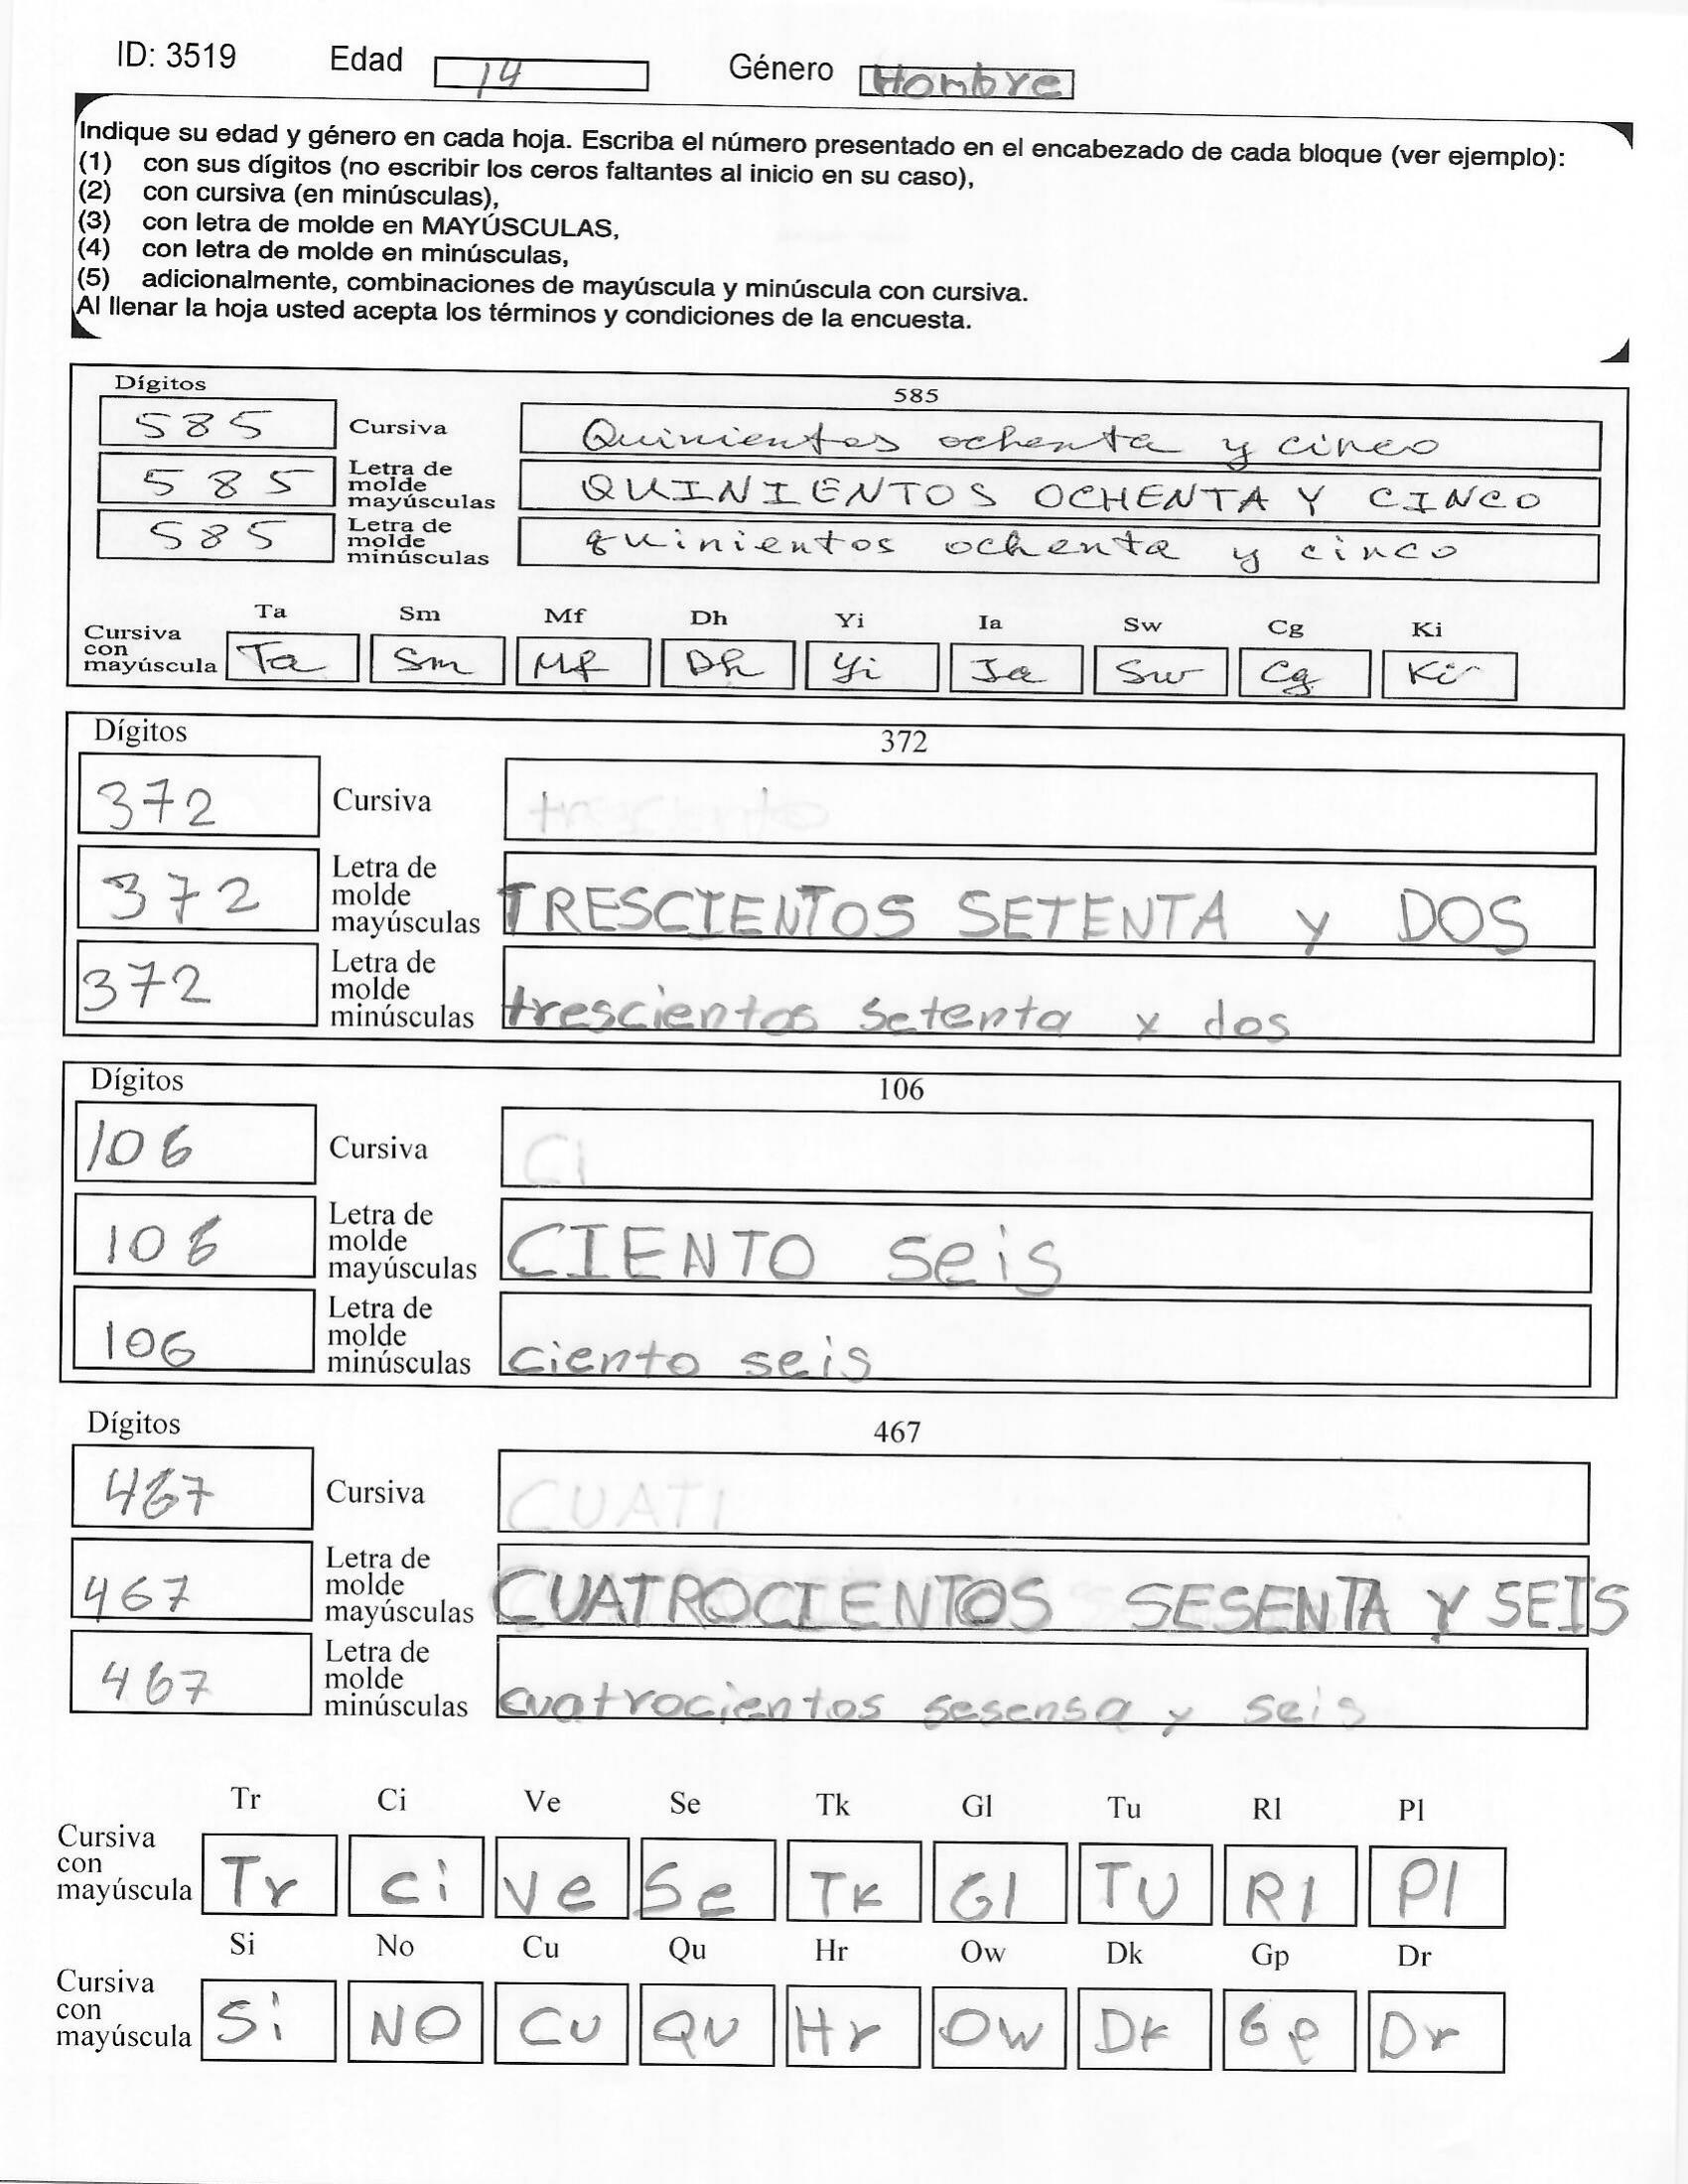 ID: 3519 Edad 14 Género Hombre
Indique su edad y género en cada hoja. Escriba el número presentado en el encabezado de cada bloque (ver ejemplo):
(1) con sus dígitos (no escribir los ceros faltantes al inicio en su caso),
(2) con cursiva (en minúsculas),
(3) con letra de molde en MAYÚSCULAS,
(4) con letra de molde en minúsculas,
(5) adicionalmente, combinaciones de mayúscula y minúscula con cursiva.
Al llenar la hoja usted acepta los términos y condiciones de la encuesta.
Dígitos 585
585 Cursiva Quinientos ochenta y cinco
585 Letra de molde mayúsculas QUINIENTOS OCHENTA Y CINCO
585 Letra de molde minúsculas quinientos ochenta y cinco
Ta Sm Mf Dh Yi Ia Sw Cg Ki
Cursiva con mayúscula Ta Sm Mf Dh Yi Ia Sw Cg Ki
Dígitos 372
372 Cursiva
372 Letra de molde mayúsculas TRESCIENTOS SETENTA y DOS
372 Letra de molde minúsculas trescientos setenta y dos
Dígitos 106
106 Cursiva CI
106 Letra de molde mayúsculas CIENTO seis
106 Letra de molde minúsculas ciento seis
Dígitos 467
467 Cursiva CUAT
467 Letra de molde mayúsculas CUATROCIENTOS SESENTA Y SEIS
467 Letra de molde minúsculas cuatrocientos sesensa y seis
Tr Ci Ve Se Tk Gl Tu Rl Pl
Cursiva con mayúscula Tr ci Ve Se Tk Gl TU Rl Pl
Si No Cu Qu Hr Ow Dk Gp Dr
Cursiva con mayúscula Si NO CU QU Hr Ow Dk Gp Dr